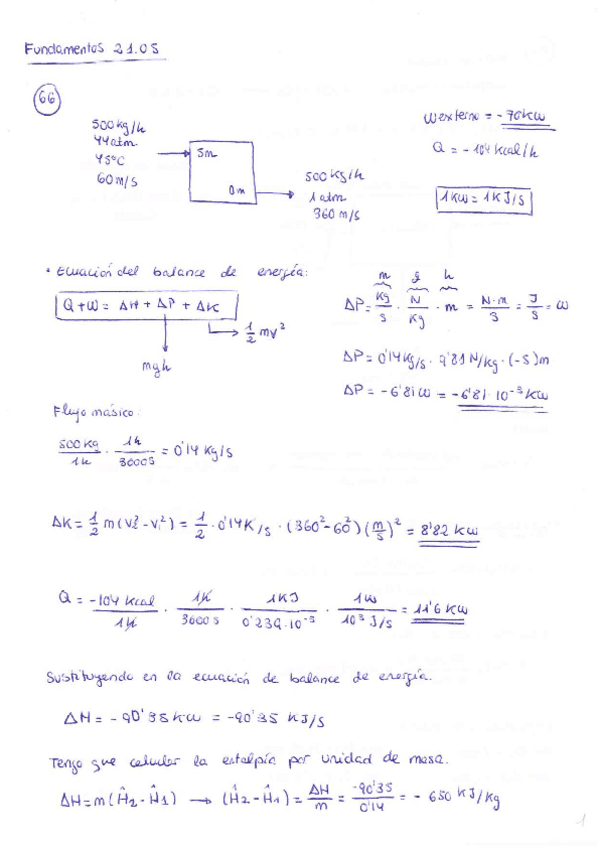 Fundamentos 21.05
66
500 kg/h
44 atm
45°C
60 m/s
5m
0m
500 kg/h
1 atm
360 m/s
Wexterno = -70kW
Q = -104 kcal/h
1 KW = 1 KJ/s
* Ecuación del balance de energía:
Q + W = ΔH + ΔP + ΔK
1/2 mv²
mgh
m g h
ΔP = Kg/s · N/Kg · m = N·m/s = J/s = W
ΔP = 0'14 Kg/s · 9'81 N/kg · (-5)m
ΔP = -6'81 W = -6'81·10⁻³ KW
Flujo másico:
500 Kg/1h · 1h/3600s = 0'14 Kg/s
ΔK = 1/2 m (V₂² - V₁²) = 1/2 · 0'14 K/s · (360² - 60²) (m/s)² = 8'82 KW
Q = -104 Kcal/1h · 1h/3600 s · 1KJ/0'239·10⁻³ · 1W/10³ J/s = 11'6 KW
Sustituyendo en la ecuación de balance de energía.
ΔH = -90'35 KW = -90'35 KJ/s
Tengo que calcular la entalpía por unidad de masa.
ΔH = m(Ĥ2 - Ĥ1) → (Ĥ2 - Ĥ1) = ΔH/m = -90'35/0'14 = - 650 KJ/Kg
1